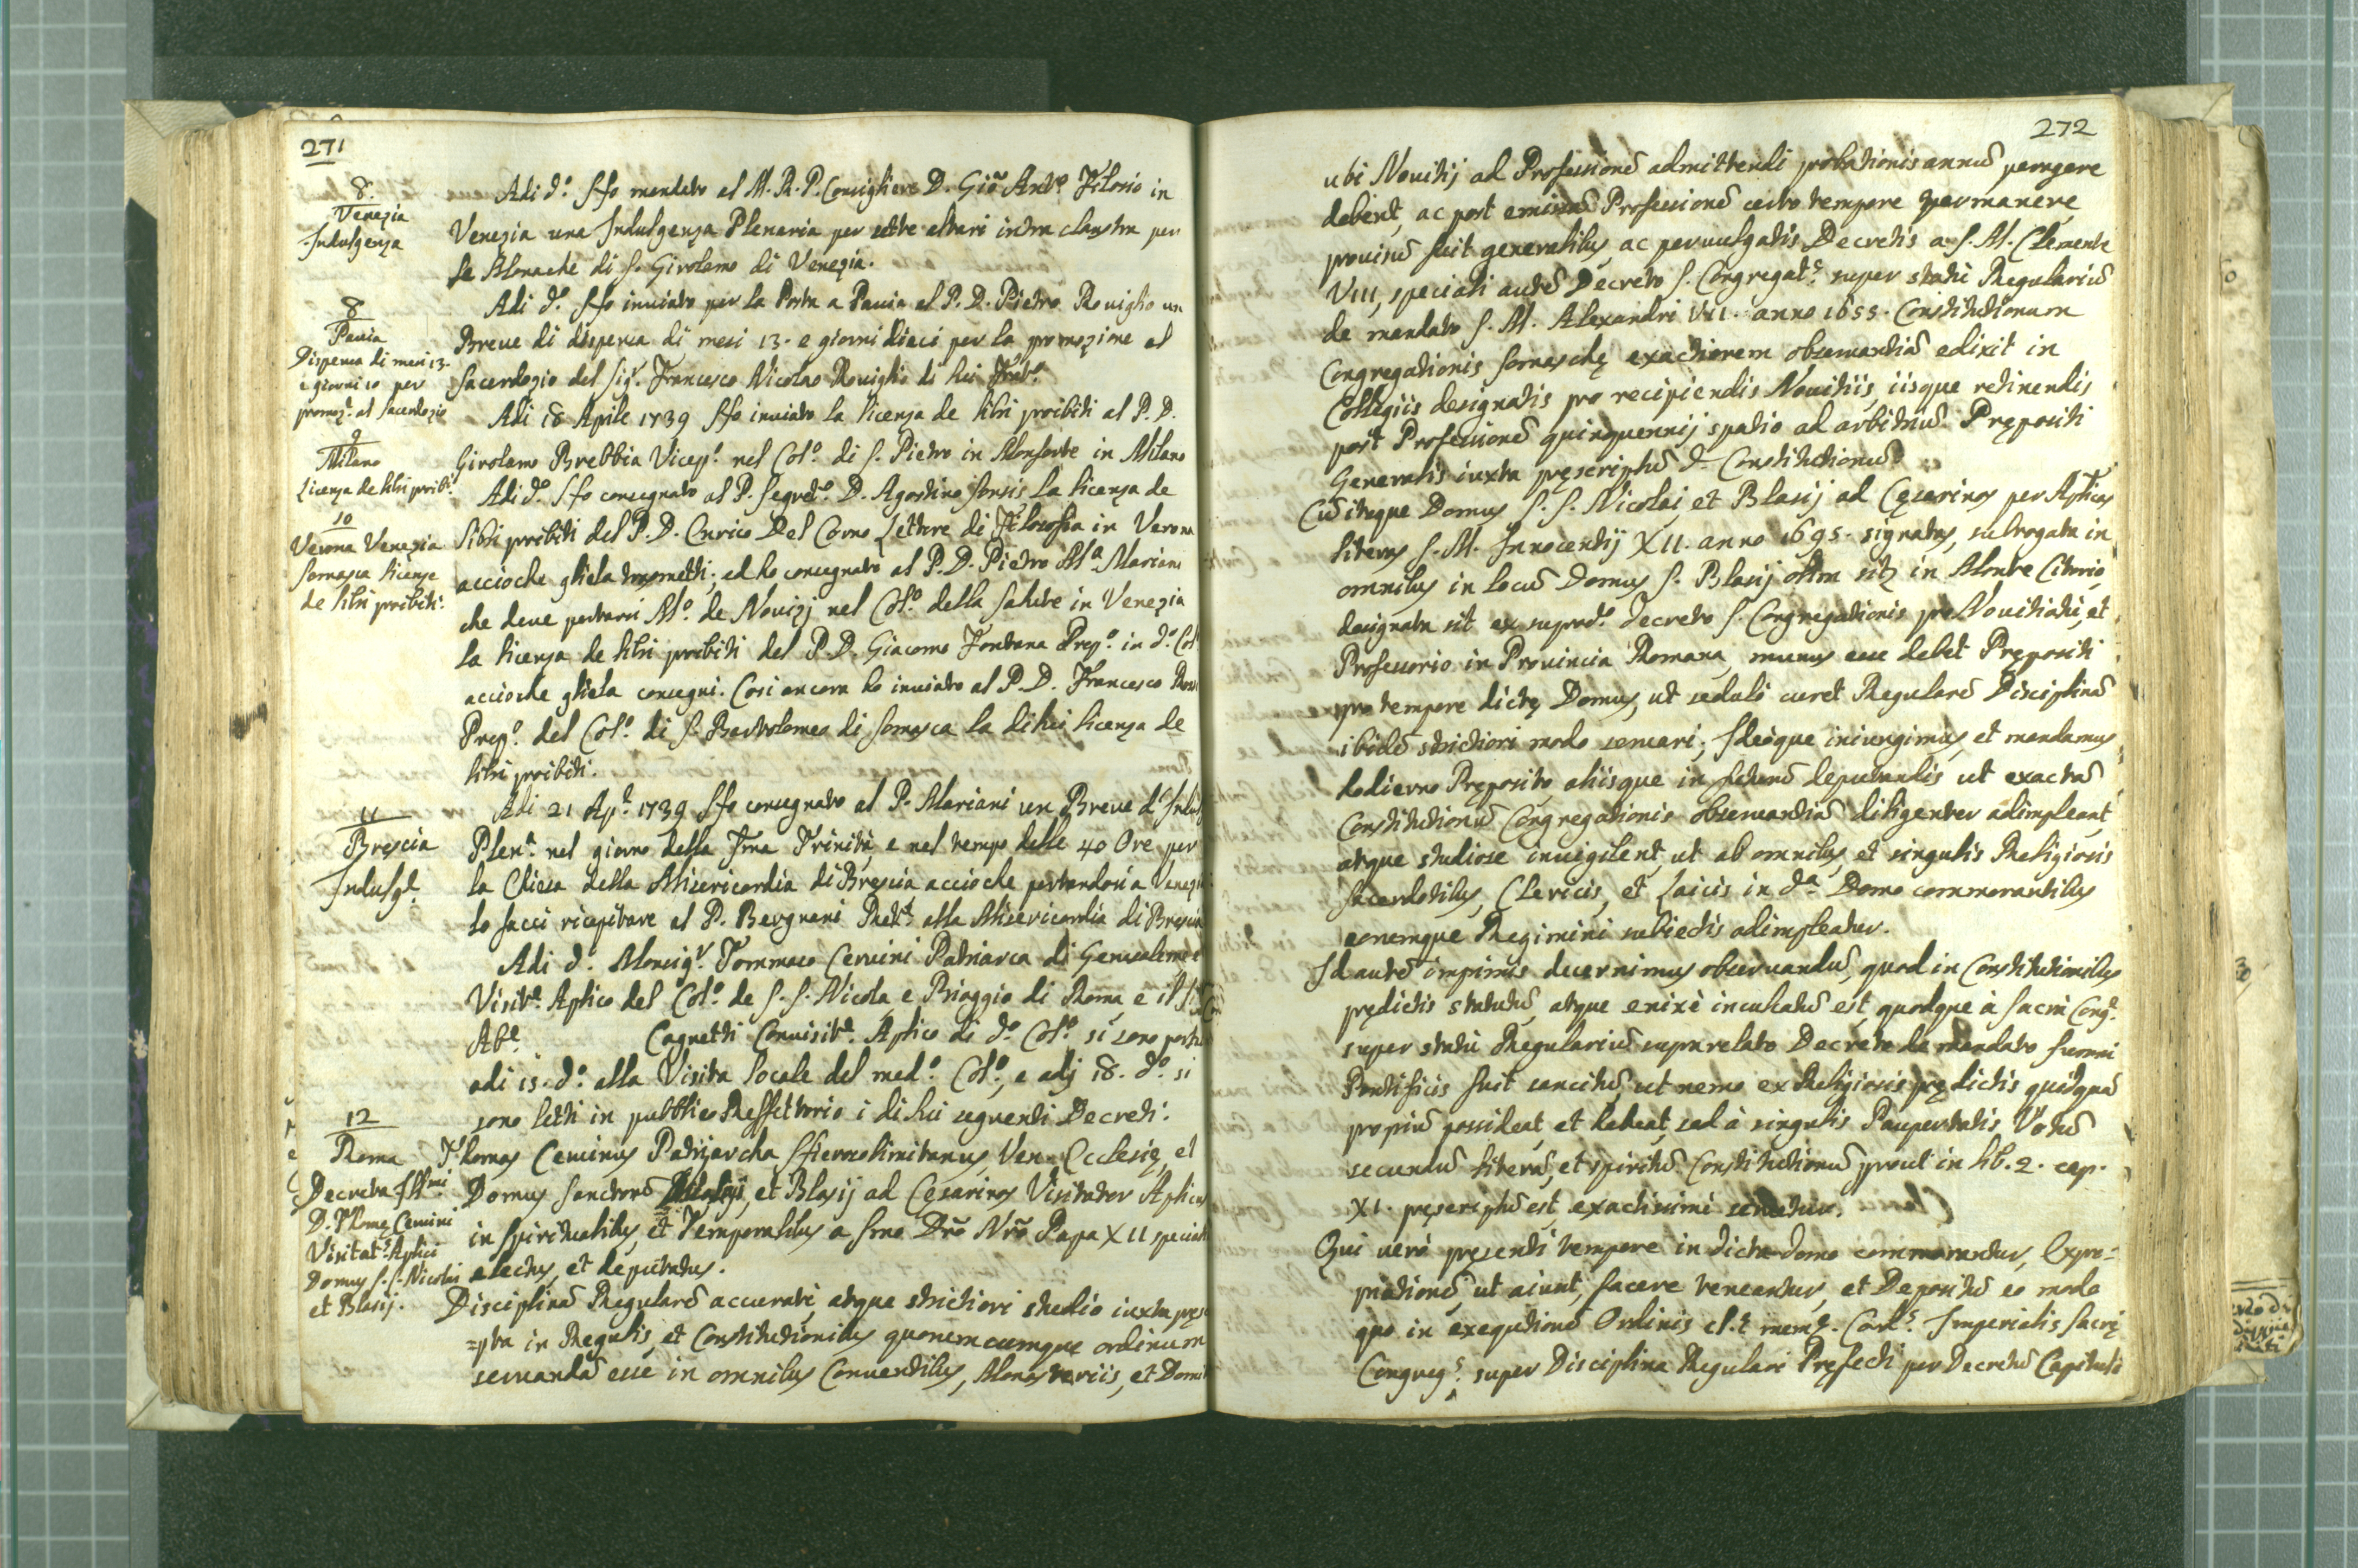 271
8.
Venezia
Indulgenza
Adi d.º Ho mandato al M. R. P. Consigliere D. Giõ Ant.º Filosio in
Venezia una Indulgenza Plenaria per sette altari intra claustra per
le Monache di S. Girolamo di Venezia.
8
Pavia
Dispensa di mesi 13.
e giorni 10 per
promoz.e al Sacerdozio
Adi d.º Ho inviato per la Posta a Pavia al P. D. Pietro Roviglio un
Breve di dispensa di mesi 13. e giorni dieci per la promozione al
Sacerdozio del Sig.r Francesco Nicolao Roviglio di lui Frat.º
9
Milano
Licenza de libri proib.i
Adi 18 Aprile 1739 Ho inviato la licenza de libri proibiti al P. D.
Girolamo Brebbia Vicep.º nel Col.º di S. Pietro in Monforte in Milano
10
Verona Venezia
Somasca licenze
de libri proibiti.
Adi d.º Ho consegnato al P. Segret.º D. Agostino Sonsis la licenza de
libri proibiti del P. D. Enrico Del Corno Lettore di Filosofia in Verona
accioche gliela trasmetti; ed ho consegnato al P. D. Pietro M.a Mariani
che deve portarsi M.º de Novizj nel Col.º della Salute in Venezia
la licenza de libri proibiti del P. D. Giacomo Fontana Prep.º in d.º Col
accioche gliela consegni. Cosi ancora ho inviato al P. D. Francesco
Prep.º del Col.º di S. Bartolomeo di Somasca la di lui licenza de
libri proibiti.
11
Brescia
Indulg.e
Adi 21 Ap.e 1739 Ho consegnato al P. Mariani un Breve d'Indulg
Plen.a nel giorno della Sma Trinità, e nel tempo delle 40 Ore per
la Chiesa della Misericordia di Brescia accioche portandosi a Venezia
lo facci ricapitare al P. Bergnani Rett.e alla Misericordia di Brescia
Adi d.º Monsig.r Tommaso Cervini Patriarca di Gerusalemme
Visit.e Aplico del Col.º de S. S. Nicola, e Biaggio di Roma, e il
Ab.e Cagnetti Convisit.e Aplico di d.º Col.º si sono portati
adi 15. d.º alla Visita locale del med.º Col.º, e adj 18. d.º si
sono letti in pubblico Reffettorio i di lui seguenti Decreti.
12
Roma
Decreta Ill.mi
D. Thomę Cervini
Visitat.s Aplici
Domus S. S. Nicolai
et Blasij.
Thomas Cervinus Patriarcha Hierosolimitanus, Ven. Ecclesię, et
Domus Sanctorũ Nicolai, et Blasij ad Cesarinos Visitator Aplicus
in spiritualibus, et Temporalibus a Smo Dño Nrõ Papa XII speciali
electus, et deputatus.
Disciplinã Regularẽ accuratè, atque strictiori studio iuxta pręs
=pta in Regulis, et Constitutionibus quorumcumque ordinum
servandã esse in omnibus Conventibus, Monasteriis, et Domi
272
ubi Novitij ad Professionẽ admittendi probationis annũ peragere
debent, ac post emissã Professionẽ certo tempore permanere
provisũ fuit generalibus, ac pervulgatis Decretis a S. M. Clemente
VIII, speciali autẽ Decreto S. Congregat.s super statũ Regulariũ
de mandato S. M. Alexandri VII. anno 1655. Constitutionum
Congregationis Somaschę exactiorem observantiã edixit in
Collegiis designatis pro recipiendis Novitiis, iisque retinendis
post Professionẽ quinquennij spatio ad arbitriũ Prępositi
Generalis iuxta pręscriptũ d. Constitutionũ.
Cũ itaque Domus S. S. Nicolaj, et Blasij ad Cęsarinos per Aplicas
literas S. M. Innocentij XII. anno 1695. signatas, subrogata in
omnibus in locũ Domus S. Blasij olim sitę in Monte Citorio,
designata sit ex suprad.º decreto S. Congregationis pro Novitiatu, et
Professorio in Provincia Romana, munus esse debet Prępositi
pro tempore dictę Domus, ut sedulò curet Regularẽ Disciplinã
ibidẽ strictiori modo servari; Ideòque iniungimus, et mandamus
hodierno Pręposito, aliisque in futurũ deputandis ut exactã
Constitutionũ Congregationis observantiã diligenter adimpleant,
atque studiose invigilent, ut ab omnibus, et singulis Religiosis
Sacerdotibus, Clericis, et Laicis in d.a Domo commorantibus
eorumque Regimini subiectis adimpleatur.
Id autẽ imprimis decernimus observandũ, quod in Constitutionibus
prędictis statutũ, atque enixè inculcatũ est, quodque à Sacra Cong.e
super statũ Regulariũ suprarelato Decreto de mandato Summi
Pontificis fuit sancitũ, ut nemo ex Religiosis prędictis quidquã
propriũ possideat, et habeat, sed à singulis Paupertatis Votũ
secundũ literã, et spiritũ Constitutionũ prout in lib. 2. cap.
XI. pręscriptũ est, exactissimè servetur.
Qui verò pręsenti tempore in dicta domo commorantur, Expro=
priationẽ, ut aiunt, facere teneantur, et Depositũ eo modo
quo in exequtionẽ Ordinis cl.ę mem.ę Card.s Imperialis Sacrę
Congreg.s super Disciplina Regulari Pręfecti per Decretũ Capituli